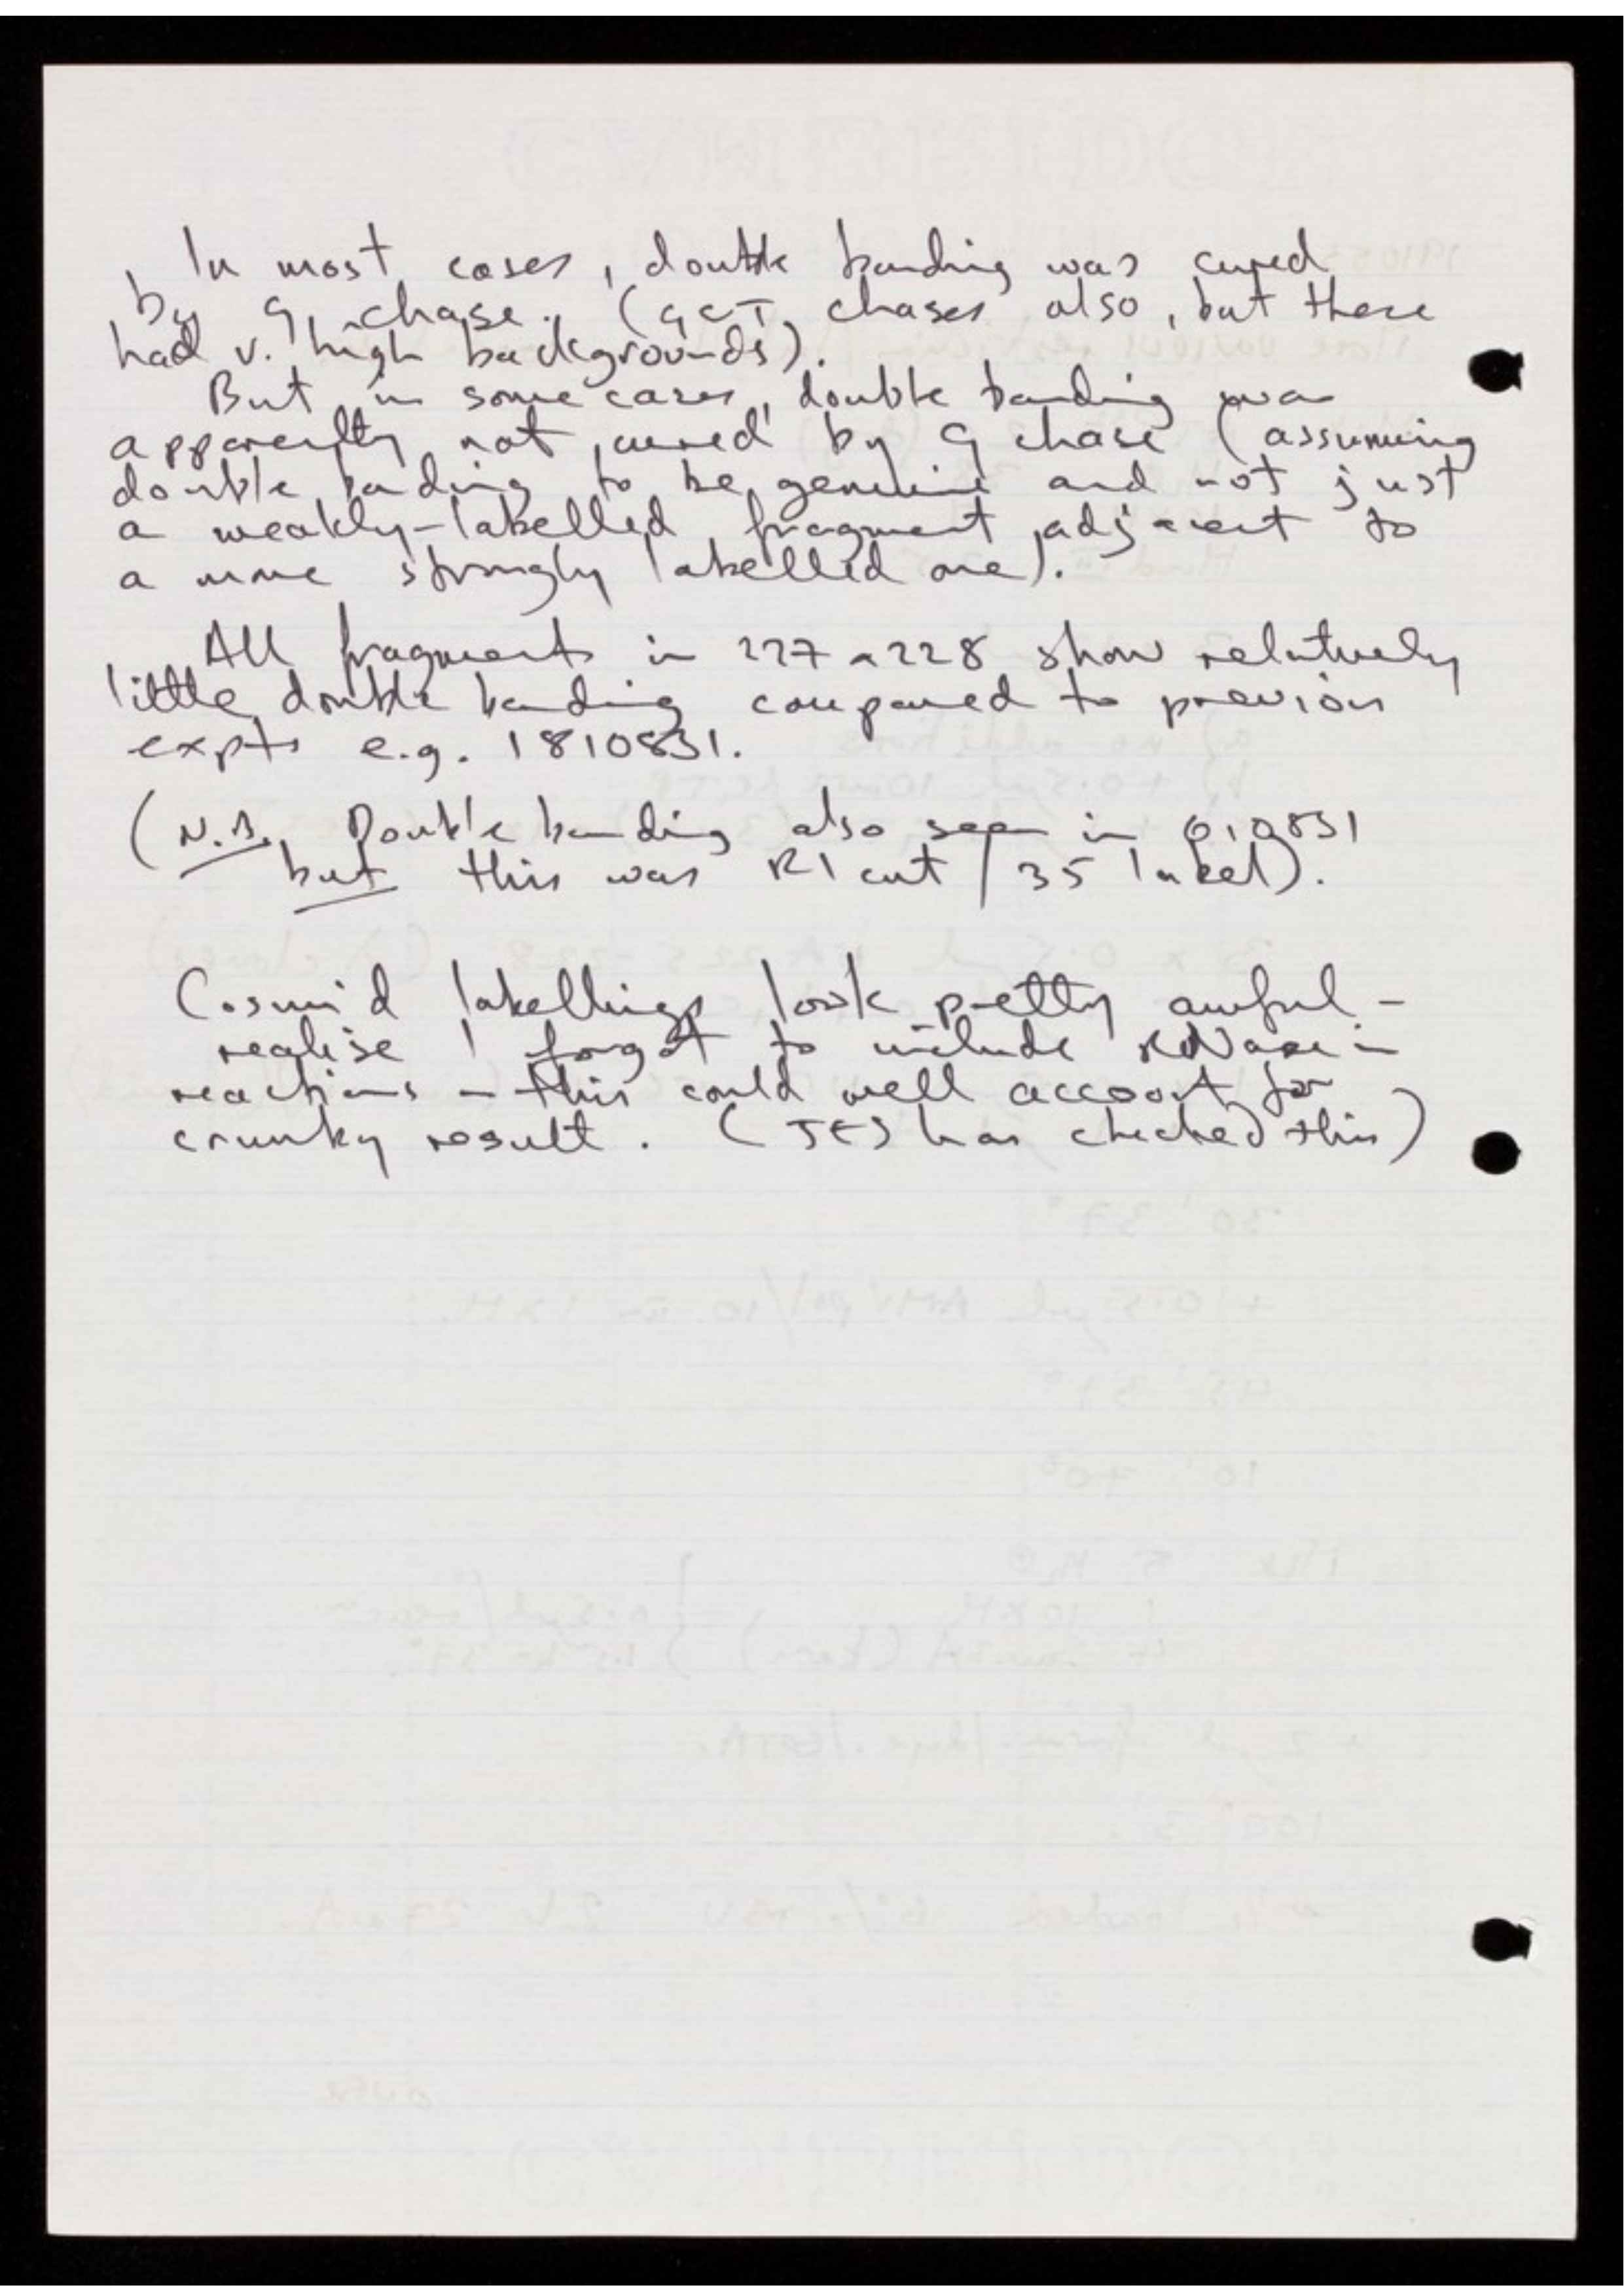 In most cases, double banding was cured
by G chase. (GCT chases also, but these
had v. high backgrounds).
But in some cases, double banding was
apparently not cured by G chase (assuming
double banding to be genuine and not just
a weakly-labelled fragment adjacent to
a more strongly labelled one).
All fragments in 227 228 show relatively
little double banding compared to previous
expts e.g. 1810831.
(N.B. Double banding also seen in
but this was R1 cut / 35 label).
Cosmid labellings look pretty awful -
realise I forgot to include RNase in
reactions - this could well account for
crunky result. (JES has checked this)